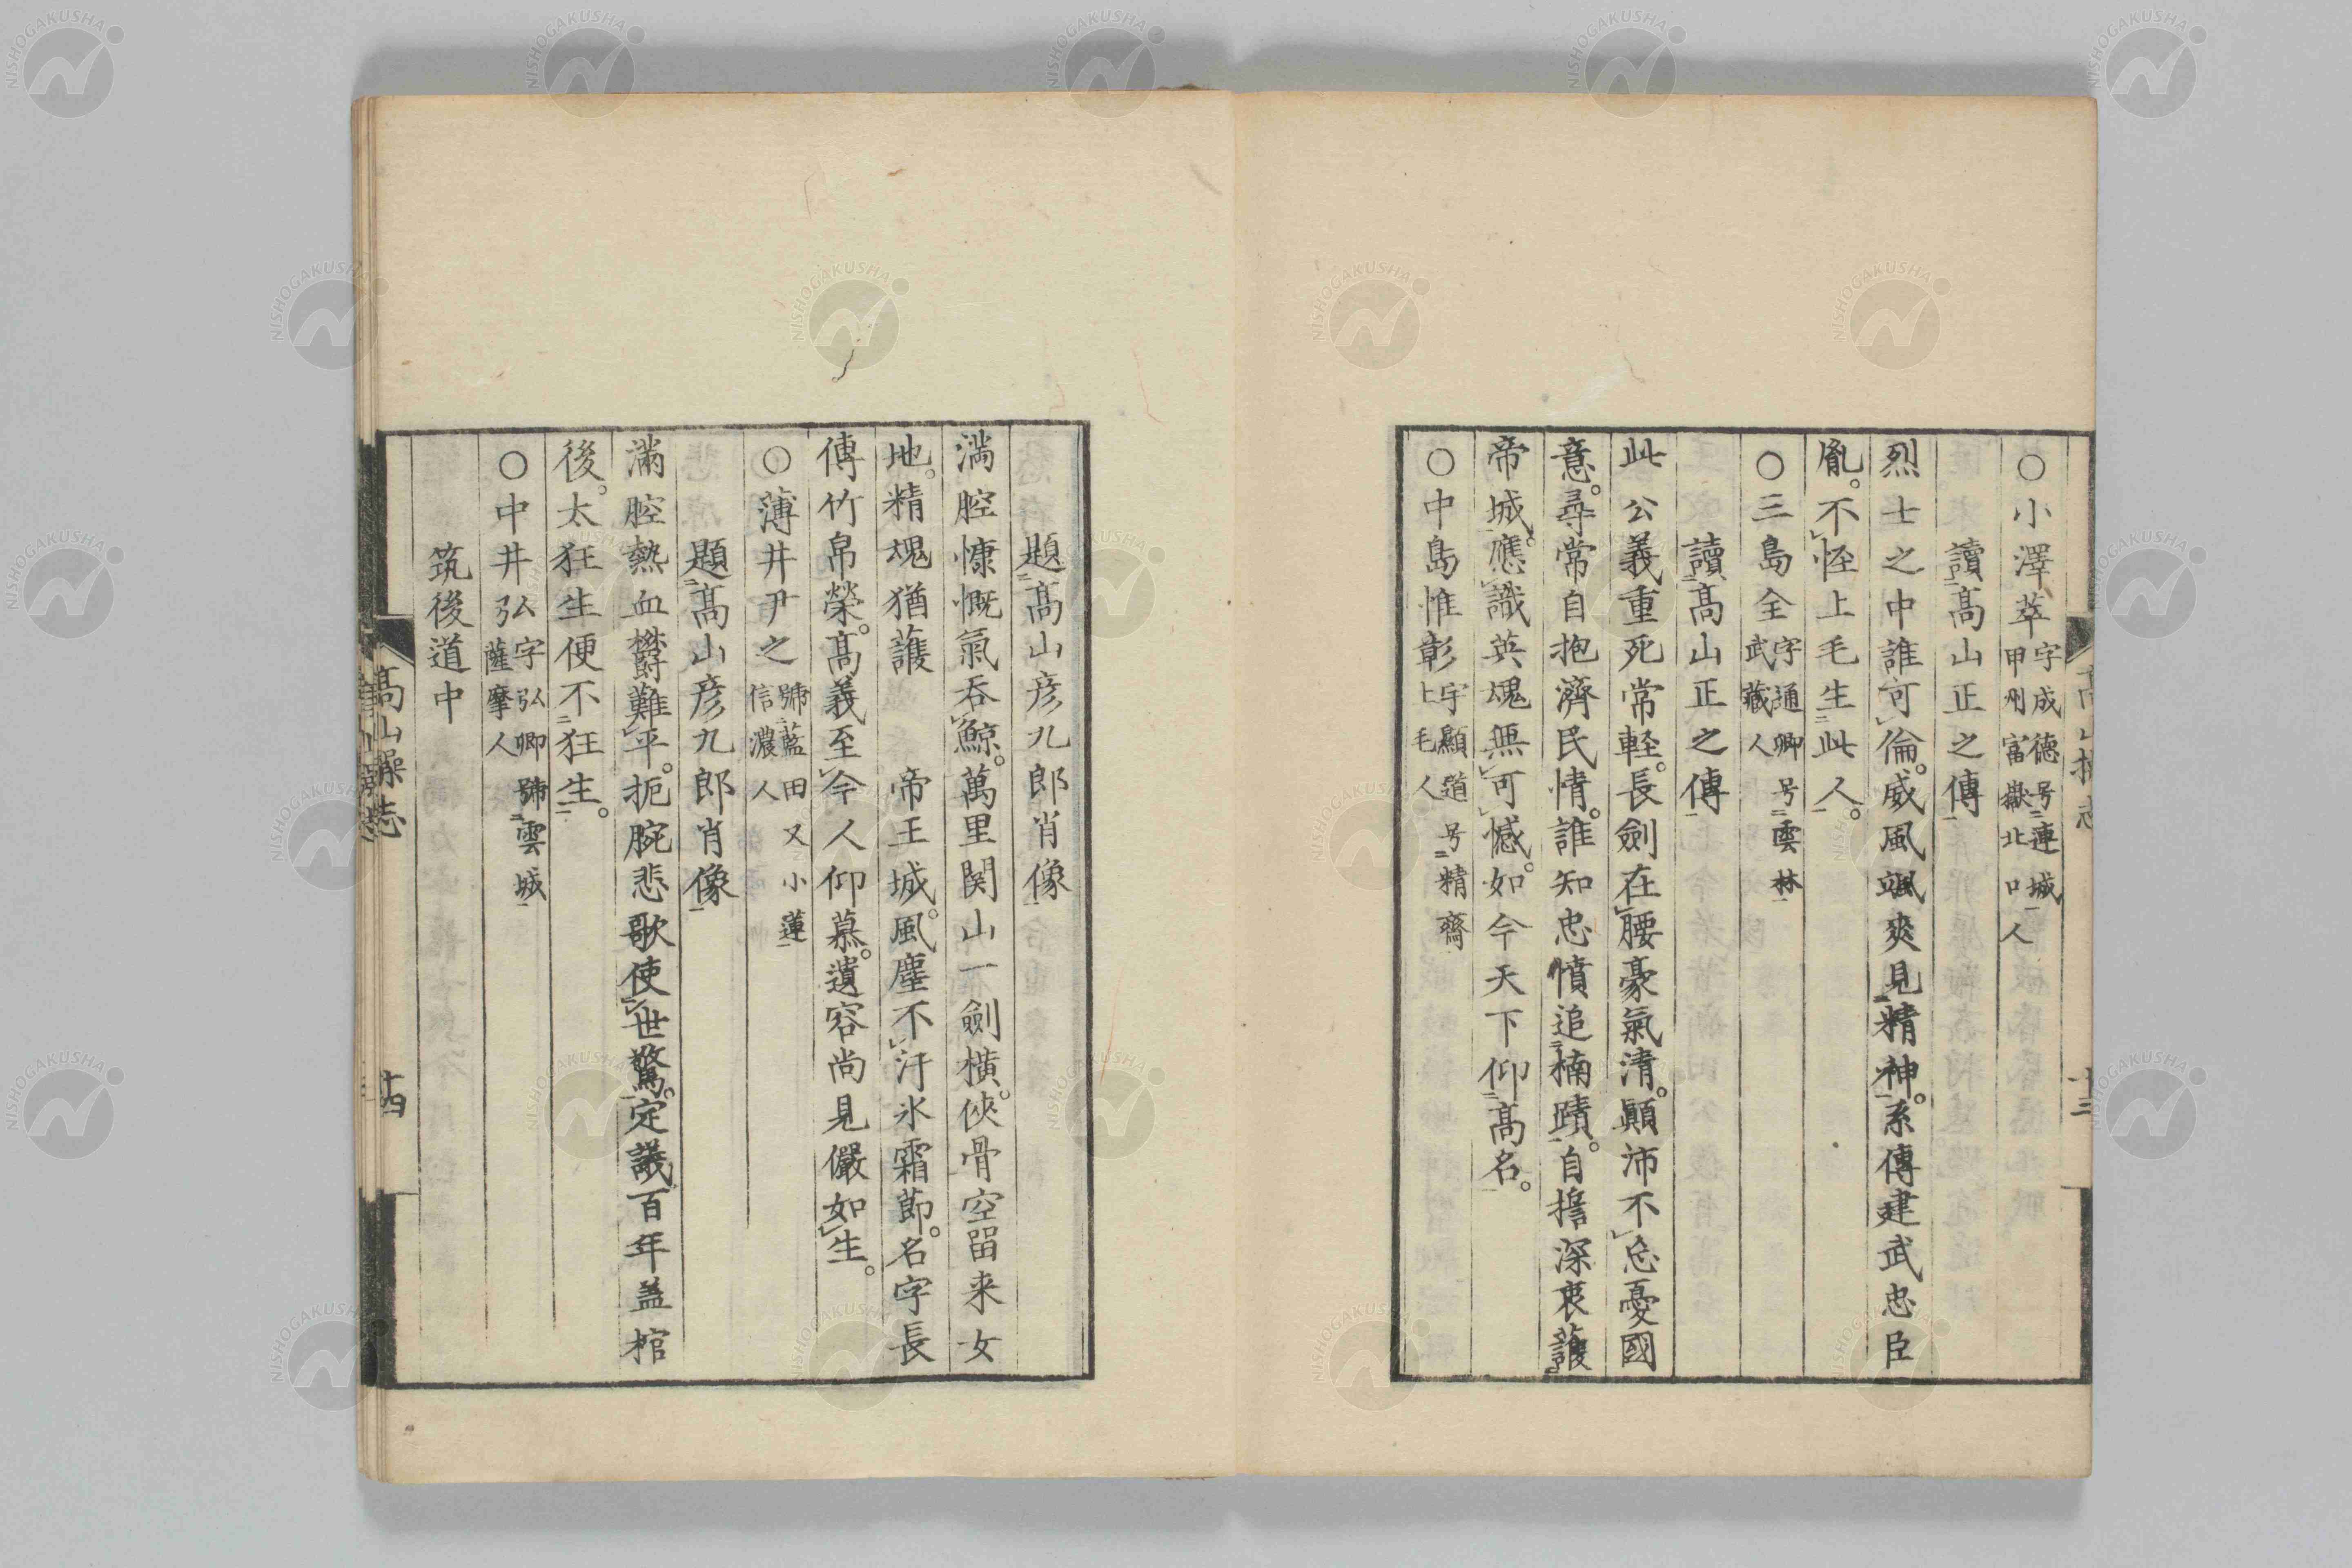 〇小澤萃 字成德号連城 甲州富嶽北口人
讀高山正之傳
烈士之中誰可倫。威風颯爽見精神。系傳建武忠臣
胤。不怪上毛生此人。
〇三島全 字通卿号雲林 武藏人
讀高山正之傳
此公義重死常軽。長劍在腰豪氣清。顚沛不忘憂國
意。尋常自抱濟民情。誰知忠憤追楠蹟。自擔深衷護
帝城。應識英魂無可憾。如今天下仰高名。
〇中島惟彰 字顯道号精齋 上毛人
題高山彦九郎肖像
満腔慷慨氣吞鯨。萬里関山一劍横。俠骨空留来女
地。精魂猶護 帝王城。風塵不汙氷霜節。名字長
傳竹帛榮。高義至今人仰慕。遺容尚見儼如生。
〇薄井尹之 號藍田又小蓮 信濃人
題高山彦九郎肖像
滿腔熱血欝難平。扼腕悲歌使世驚。定議百年盖棺
後。太狂生便不狂生。
〇中井弘 字弘卿號雲城 薩摩人
筑後道中
高山操志
十四
十三
NISHOGAKUSHA